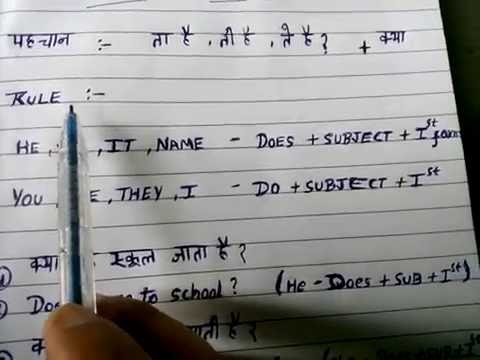 पहचान :- ता है , ती है , ते है ? + क्या
RULE :-
HE, , IT, NAME - DOES + SUBJECT + Ist form
YOU , THEY, I - DO + SUBJECT + Ist
क्या स्कूल जाता है ?
to school ? (He - Does + SUB + Ist)
है ?